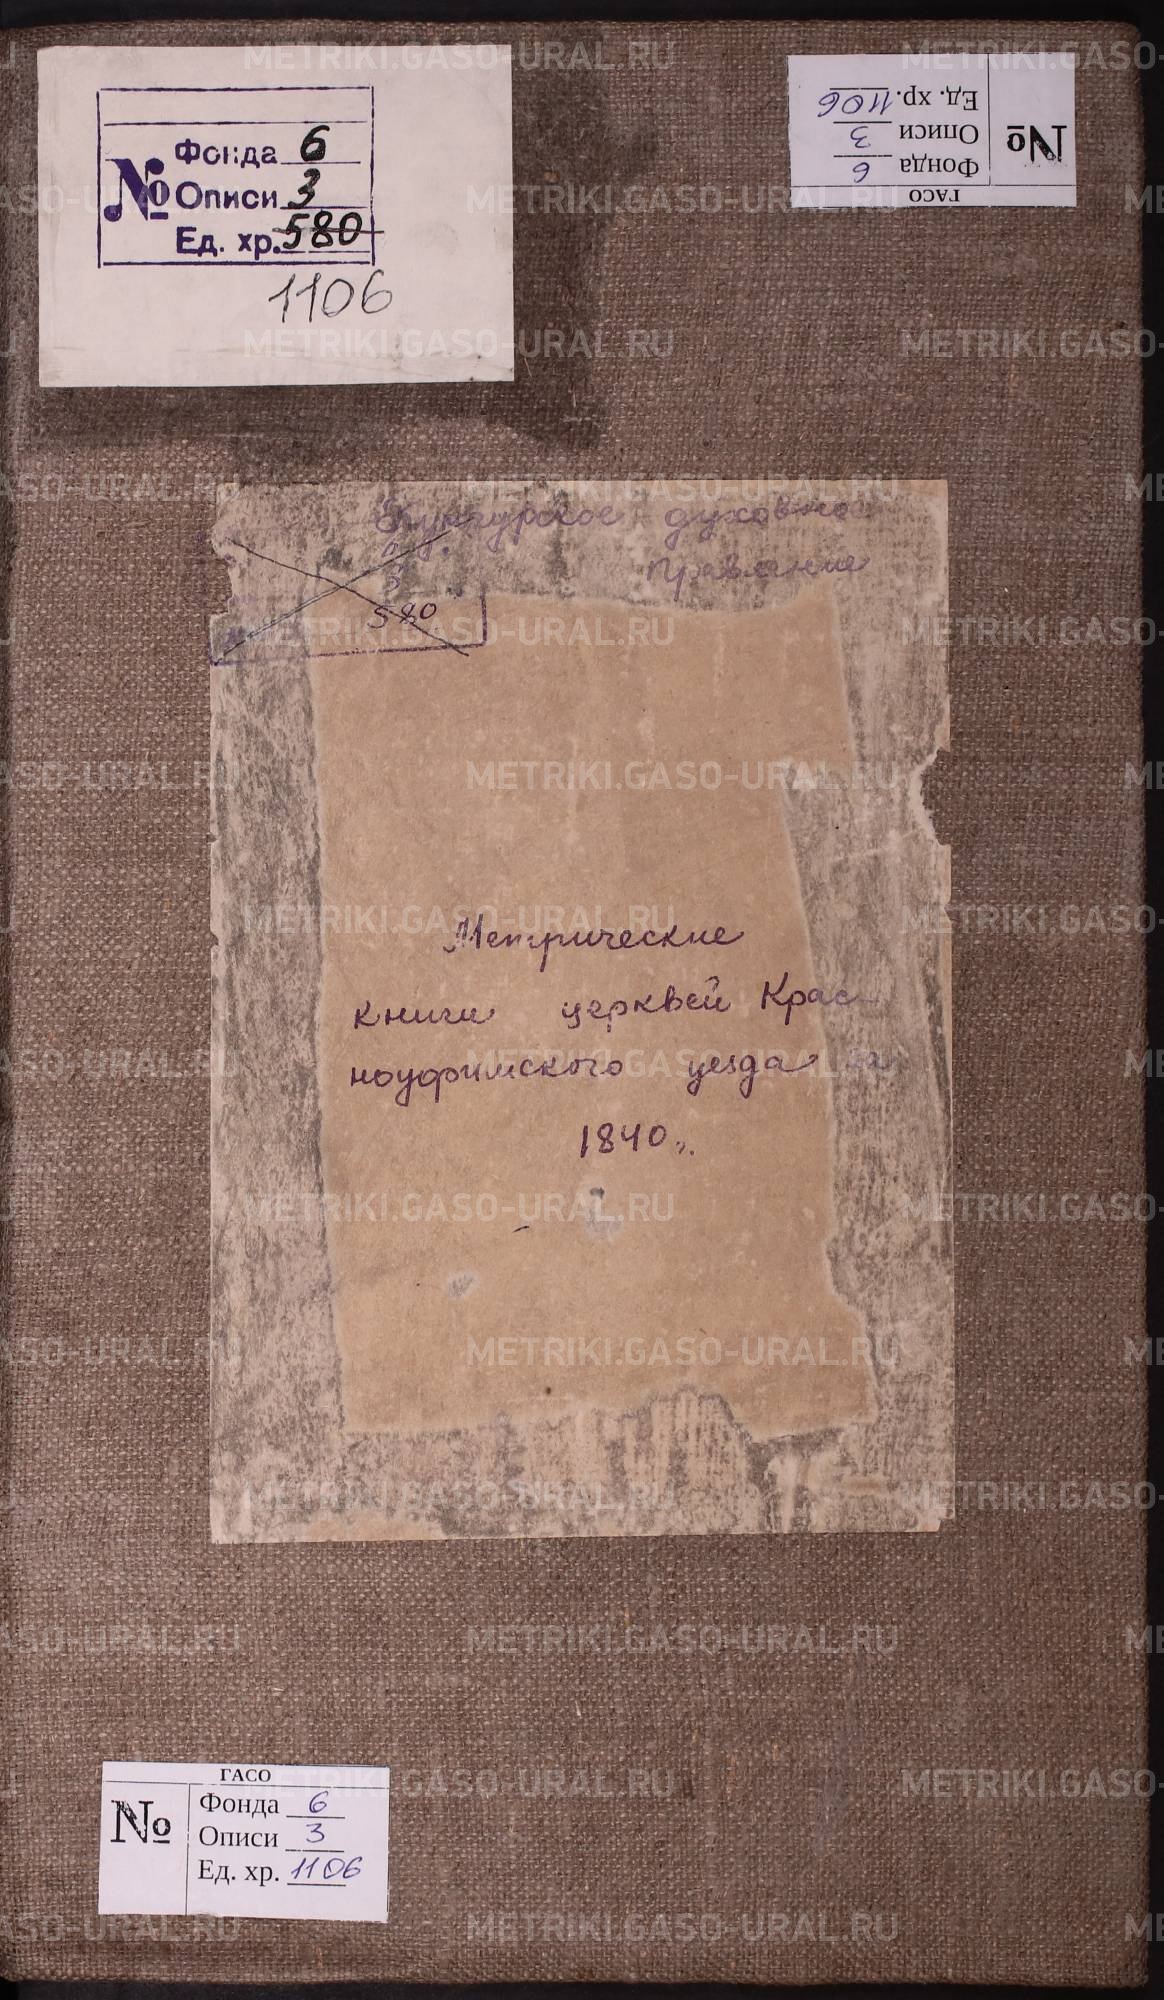 №
Фонда 6
Описи 3
Ед. хр. 580
1106
ГАСО
№
Фонда 6
Описи 3
Ед. хр. 1106
Кунгурское духовно
правление
580
Метрические
книги церквей Крас
ноуфимского уезда за
1840 г.
ГАСО
№
Фонда 6
Описи 3
Ед. хр. 1106
METRIKI.GASO-URAL.RU